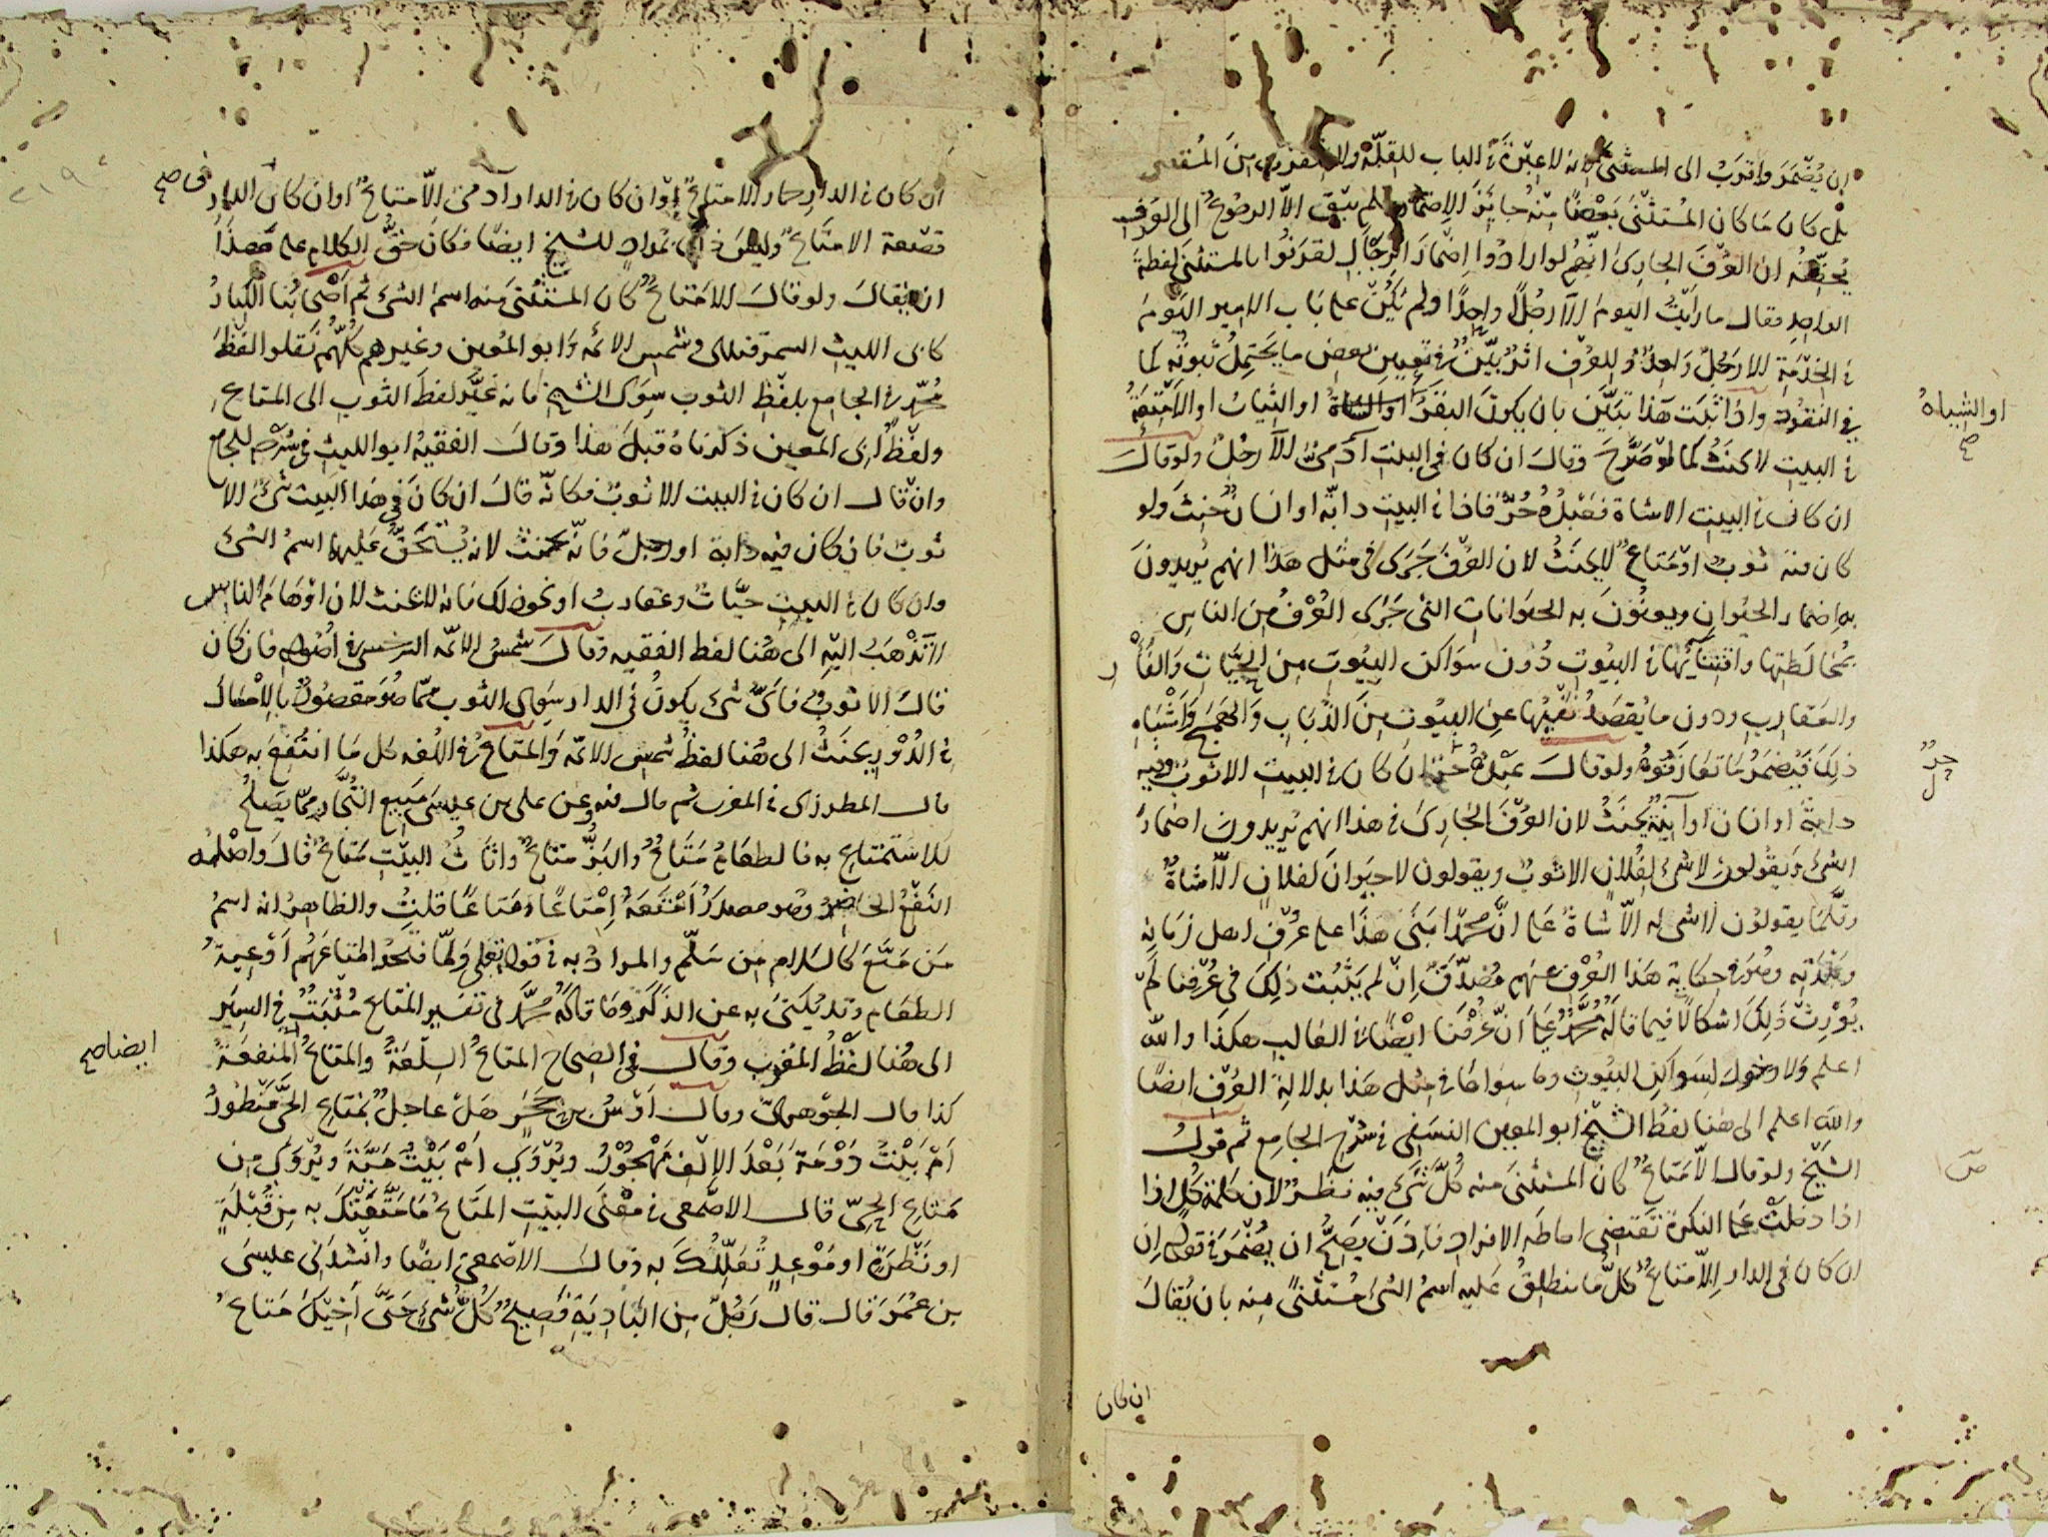 ان يُضْمَرَ واقرَبُ الى المستثنىَ لانه لا عِبْرَةَ في الباب للقلّة ولا
بل كان مَا كان المُسْتثنَىٰ بَعْضًا مِنْه جايَز الاضمار ولم يبْق الاّ الرجوعُ الى العُرف
يُحقِّقُه ان العُرْفَ الجارِىَ انّهم لو ارادُوا اِضْمارَ الرِجَالِ لقرنُوا بالمستثنىَ لفظةَ
الواحدِ فقال ما رايْتُ اليومَ الاّ رجُلاً واحِدًا ولم يَكُنْ على بَابِ الامير اليَومَ
في الخِدْمَةِ الا رَجُلٌ وَاحِدٌ وللعُرْفِ اثرٌ بيّنٌ في تعيين بعض ما يَحْتَمِلُ ثبوتُه كما
في النقُود واذا ثبَتَ هَذا تبَيَّن بان يكون البقرُ او الشاةُ او الثيابُ او الاَمْتِعَةُ
في البيتِ لا يحنَثُ كما لوْ صَرَّحَ وقالَ ان كان في البيْتِ آدَمِىٌّ الاّ رجُلٌ ولو قالَ
ان كانَ في البيت الا شاة فعَبْدُهُ حُرٌّ فاذا في البيْتِ دابّة او انسانٌ حَنِثَ ولو
كان فيه ثوبٌ اوْ مَتاعٌ لا يحنَثُ لان العُرْفَ جَرَى في مثل هذا انهم يُريدونَ
به اِضمارَ الحيَوانِ ويعنُونَ به الحيَوانات التى جَرَى العُرْفُ مِنَ الناسِ
بمُخالَطتِها واقتنَايُهَا في البُيوتِ دُون سَواكن البيُوت مِن الحيَّاتِ وَالفَأر
والعَقارِبِ ودون ما يُقصَدُ نَفيُها عن البيُوت مِنَ الذُبَابِ وَالهَمَجِ وَاشْباهِ
ذلِكَ فيُضمَرُ مَا تعَارَفُوهُ ولو قالَ عَبْدُهُ حُرٌّ ان كان في البيت الا ثوبٌ وفيه
دابةٌ او انسان او آنِيَةٌ يَحنَثُ لان العُرْفَ الجارِىَ في هذا انهم يُريدونَ اضمارَ
الشىء وَيقولون لا شىءَ لفُلانٍ الا ثوبٌ ويقولون لا حيَوانَ لفلانٍ الاّ شاةٌ
وقلّمَا يقولون لا شىء له الاّ شاةٌ على انّ محمّدًا بَنَى هَذَا على عُرْفِ اهل زمَانِه
وبَلْدَتِه وهُوَ في حِكايَة هَذا العُرْف عنهم مُصَدَّقٌ اِنْ لم يَثْبُت ذلِكَ في عُرْفنا لَمْ
يُوْرِثْ ذَلِكَ اشكالًا فيما قالَهُ مُحَمَّدٌ على انّ عُرْفَنا ايْضًا في الغالب هكذَا والله
اعلم وَلا دخول لِسَواكِن البيُوتِ وما سِواها في مِثل هَذا بدلالِةِ العُرْفِ ايضًا
والله اعلم الى هنا لفظ الشيْخ ابو المعِين النسَفِى في شرْح الجامع ثم قولُ
الشَيْخ ولو قال الاّ مَتاعٌ كان المستثنَى منه كُلَّ شَىءٍ فيه نظَرٌ لان كلمة كُل اذا
اذا دخلَتْ على النكرةِ تَقتضى احاطة الافراد فاِذَنْ يَصِحُّ ان يُضْمَرَ في قوله اِن
ان كان في الدارِ اِلاّ مَتاعٌ كلُّ ما ينطلِقُ عَليه اسمُ الشىءِ مُستثنًى مِنه بان يُقالَ
ان كان
او الشياهُ صح
حرٌّ
ان كان في الدار حمار الا متاعٌ اوْ ان كان في الدار آدمىّ الاّ متاعٌ او ان كان في الدار صح
قصْعة الا متاعٌ وليسَ ذلكَ بمُرادٍ للشيخ ايضًا فكان حقُّ الكلام على هَذَا
ان يُقالَ ولو قالَ الا متاعٌ كان المستثنَى منه اسمَ الشىء ثم اَصْحابُنا الكِبارُ
كابى الليث السمرقندى وشمس الائمة وَابو المُعِين وغيرهم كُلّهُم نَقلوا لفْظَ
مُحمّد في الجامع بلفْظِ الثوب سِوَى الشيخ فانه غَيَّرَ لفظَ الثوبِ الى المتاع
ولفْظُ ابى المعين ذكرناهُ قبلَ هذا وقالَ الفقيهُ ابو الليث في شَرْحِه للجامع
وانْ قال ان كان في البيت الا ثوبٌ فكانّه قالَ ان كانَ في هَذا البَيت شىءٌ الا
ثوبٌ فان كان فيه دابة او رجلٌ فانّه يحنث لانه يُستحَقّ عَليها اسمُ الشىء
وان كان في البيت حيَّاتٌ وعقاربُ او نحو ذلك فانه لا يحنث لان اوْهَامَ الناس
لا تذْهَبُ اليه الى هُنا لفظ الفقيه وقالَ شمسُ الائمّه السرخسى في اصُولِهِ فان كان
قال الا ثوبٌ فاىُّ شىء يكونُ في الدار سِوَى الثوب ممّا هُوَ مقصُودٌ بالاِمْسَاكِ
في الدُوْرِ يحنَثُ الى هُنا لفظُ شمس الائمّه وَالمتاعُ في اللغه كل مَا انتُفِعَ به هكذا
قال المطرزى في المغرب ثم قال فيه وعن على بن عيسَى مَبيع التُجَّار ممّا يَصلُحُ
للاستمتاع به فالطعَامُ مَتَاعٌ والبَزُّ متاعٌ واثَاثُ البيْتِ مَتاعٌ قالَ واصْلُه
النفْعُ الحاضِرُ وهو مصدرُ اَمْتَعَهُ اِمْتَاعًا ومَتاعًا قلتُ والظاهِرُ انه اسمُ
مَن مَتَّعَ كالسَلام مِن سَلّم والمرادُ به في قوله تعلى وَلمّا فتحُوا مَتاعَهُم اَوْعِيةُ
الطعَام وقد يُكنىَ به عن الذكَر وَمَا قالَهُ مُحمّدٌ في تفسير المتاع مُثبَتٌ في السِيَر
الى هُنا لفْظُ المُغرب وقالَ في الصِحاح المتاعُ السِلْعَةُ والمتاعُ المَنفعَةُ ايضا صح
كذا قال الجوْهرىّ وقالَ اَوْسُ بن حَجَرٍ هَلْ عاجِلٌ بِمَتاعِ الحىِّ مَنْظورُ
اَمْ بَيْتُ دَوْمَةَ بَعْدَ الاِلْف مَهْجُوْرُ ويُرْوَى اَمْ بَيْتُ مَيَّةَ ويُرْوَى مِن
مَتاعِ الحِىّ قالَ الاصْمعى في معْنَى البيْتِ المتَاعُ مَا مَتَّعَتْكَ به مِن قُبْلَةٍ
او نَظْرَةٍ او مَوْعِدٍ تُعَلِّلُكَ به وقالَ الاصْمعِىُ ايضًا وانْشدَنى عيسَى
بن عُمَرَ قالَ قالَ رَجُلٌ مِن البَادِيَةِ فَصِيحٌ كُلُّ شىءٍ حَتَّى اَخيْكَ مَتاعٌ